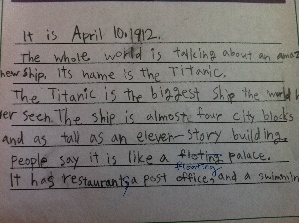 It is April 10, 1912.
The whole world is talking about an amaz
new ship. Its name is the Titanic.
The Titanic is the biggest ship the world h
ver seen. The ship is almost four city blocks
and as tall as an eleven-story building.
People say it is like a floting palace.
floating
It has restaurants, a post office, and a swimmin